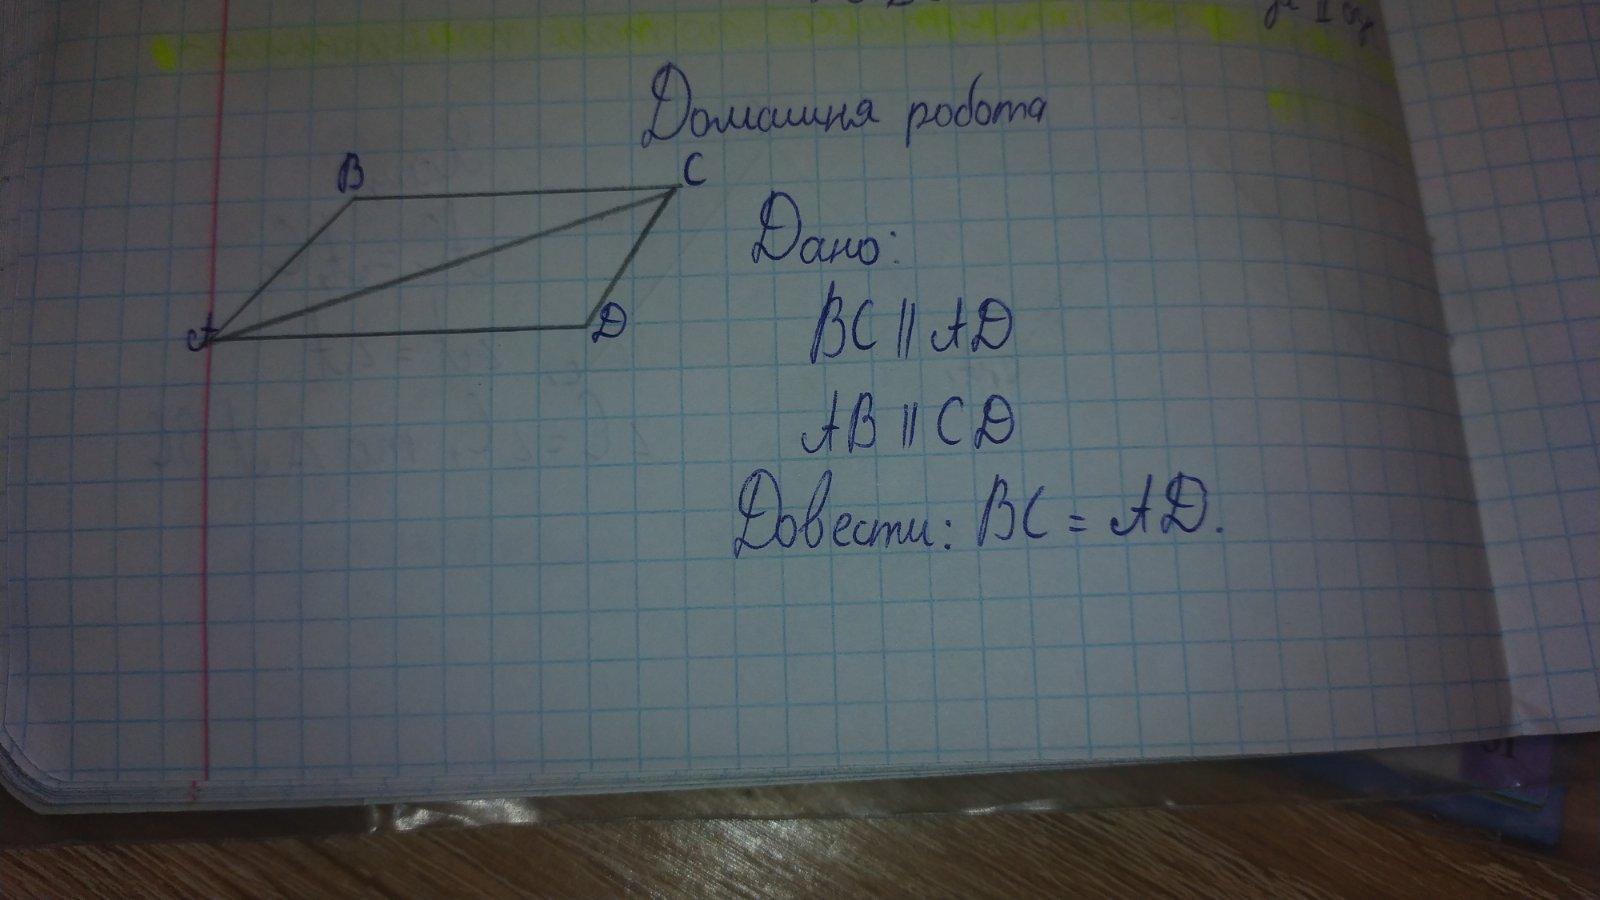 Домашня робота
B
C
Дано:
A
D
BC || AD
AB || CD
Довести: BC = AD.